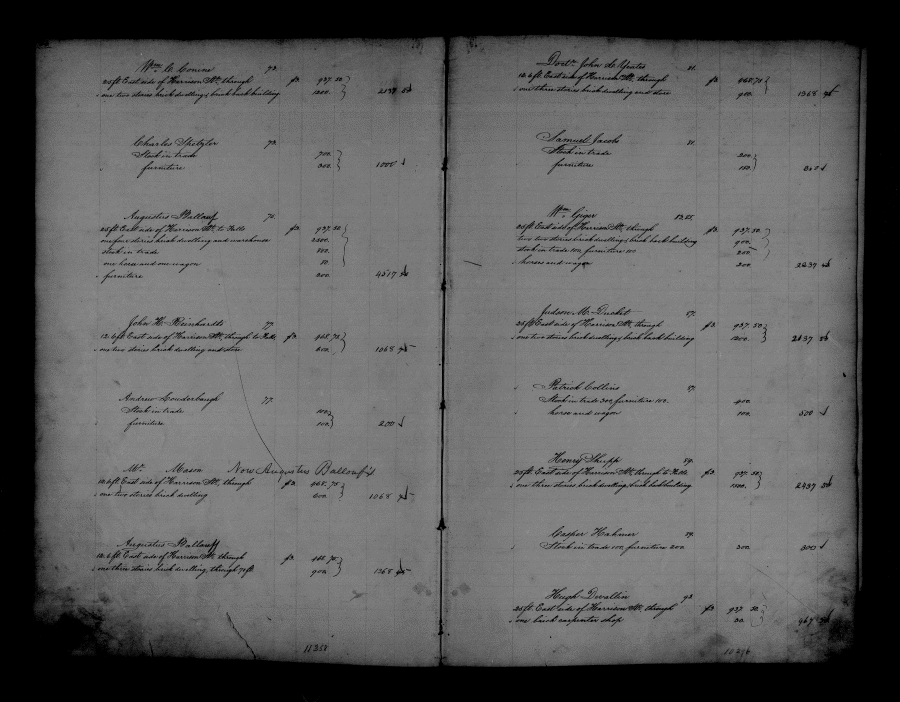 Wm. C. Conine 73.
25ft East side of Harrison St. through f3. 937.50
one two stories brick dwelling & brick back building 1200. 2137 50
Charles Spetzler 73.
Stock in trade 700.
furniture 300. 1000
Augustus Ballauf 75.
25ft East side of Harrison St. to Falls f3. 937.50
one four stories brick dwelling and warehouse 2500.
stock in trade
one horse and one wagon
furniture 200 4517
John H. Reinhardt 77.
12.6ft East side of Harrison St. through to Falls f3. 468.75
one two stories brick dwelling and store 600. 1068 75
Andrew Louderbaugh 77.
Stock in trade 100.
furniture 100. 200
Mr. Mason Now Augustus Ballouf's
12.6ft East side of Harrison St. through f3. 468.75
one two stories brick dwelling 600. 1068 75
Augustus Ballauf
12.6ft East side of Harrison St. through f3. 468.75
one three stories brick dwelling, through 70ft 900. 1368 75
11358
Doctr. John L. Yeates 81.
12.6ft East side of Harrison St. through f3. 468.75
one three stories brick dwelling and store 900. 1368 75
Samuel Jacobs 81.
Stock in trade 200.
furniture
Wm. Geiger 83.85.
25ft East side of Harrison St. through f3. 937.50
two two stories brick dwellings & brick back building 900.
stock in trade 100, furniture 100 200
horses and wagon 200 2237 50
Judson M. Ducket 87.
25ft East side of Harrison St. through f3. 937.50
one two stories brick dwelling & brick back building 1200. 2137 50
Patrick Collins 87.
Stock in trade 300, furniture 100. 400
horse and wagon 100. 500
Henry Shupp 89.
25ft East side of Harrison St. through to Falls f3. 937.50
one three stories brick dwelling, brick back building 1500. 2437 50
Casper Hahmer 89.
Stock in trade 100, furniture 200 300 300
Hugh Devallin 93.
25ft East side of Harrison St. through f3. 937.50
one brick carpenter shop 30. 967 50